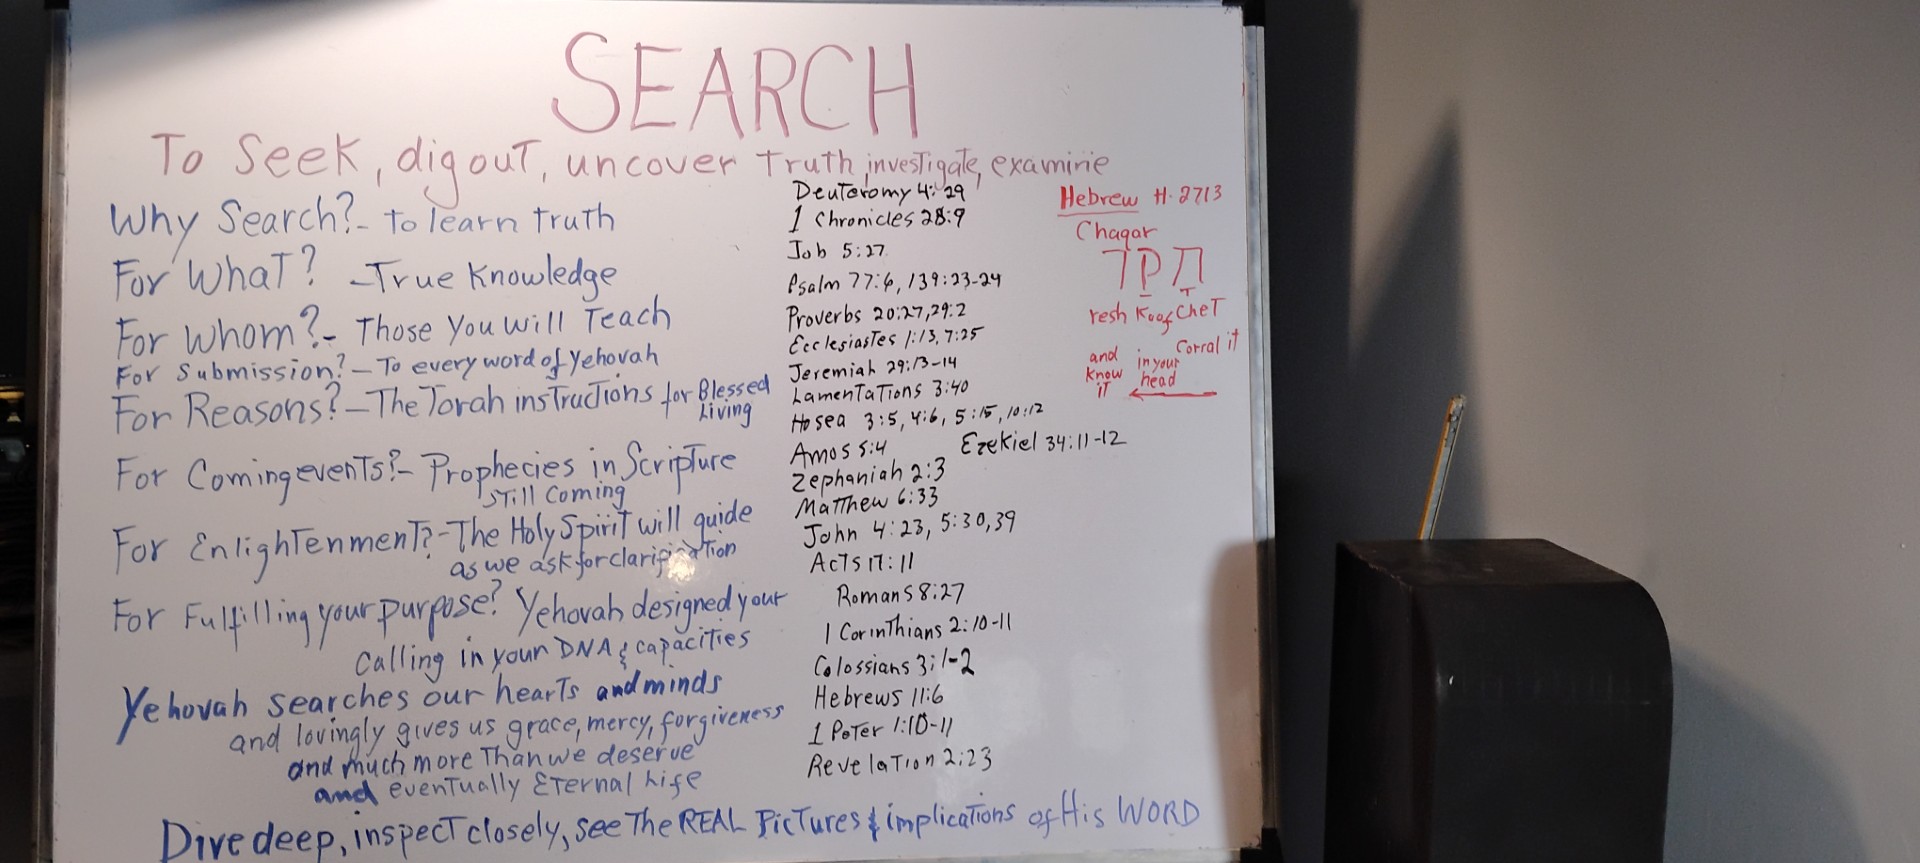 SEARCH
To Seek, dig out, uncover truth, investigate, examine
Why Search? - to learn truth
For What? - True Knowledge
For Whom? - Those You Will Teach
For Submission? - To every word of Yehovah
For Reasons? - The Torah instructions for Blessed
Living
For Coming events? - Prophecies in Scripture
still Coming
For Enlightenment? - The Holy Spirit will guide
as we ask for clarification
For Fulfilling your purpose? Yehovah designed your
Calling in your DNA & capacities
Yehovah searches our hearts and minds
and lovingly gives us grace, mercy, forgiveness
and much more Than we deserve
and eventually Eternal Life
Deuteromy 4:29
1 Chronicles 28:9
Job 5:27
Psalm 77:6, 139:23-24
Proverbs 20:27, 29:2
Ecclesiastes 1:13, 7:25
Jeremiah 29:13-14
Lamentations 3:40
Hosea 3:5, 4:6, 5:15, 10:12
Amos 5:4 Ezekiel 34:11-12
Zephaniah 2:3
Matthew 6:33
John 4:23, 5:30,39
Acts 17:11
Romans 8:27
1 Corinthians 2:10-11
Colossians 3:1-2
Hebrews 11:6
1 Peter 1:10-11
Revelation 2:23
Hebrew H.2713
Chaqar
חקר
resh Koof Chet
Corral it
in your
head
and
know
it
Dive deep, inspect closely, see The REAL Pictures & implications of His WORD